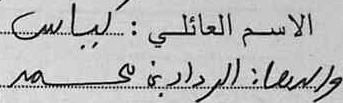 الاسم العائلي : لباس
والدها: الردادبن محمد